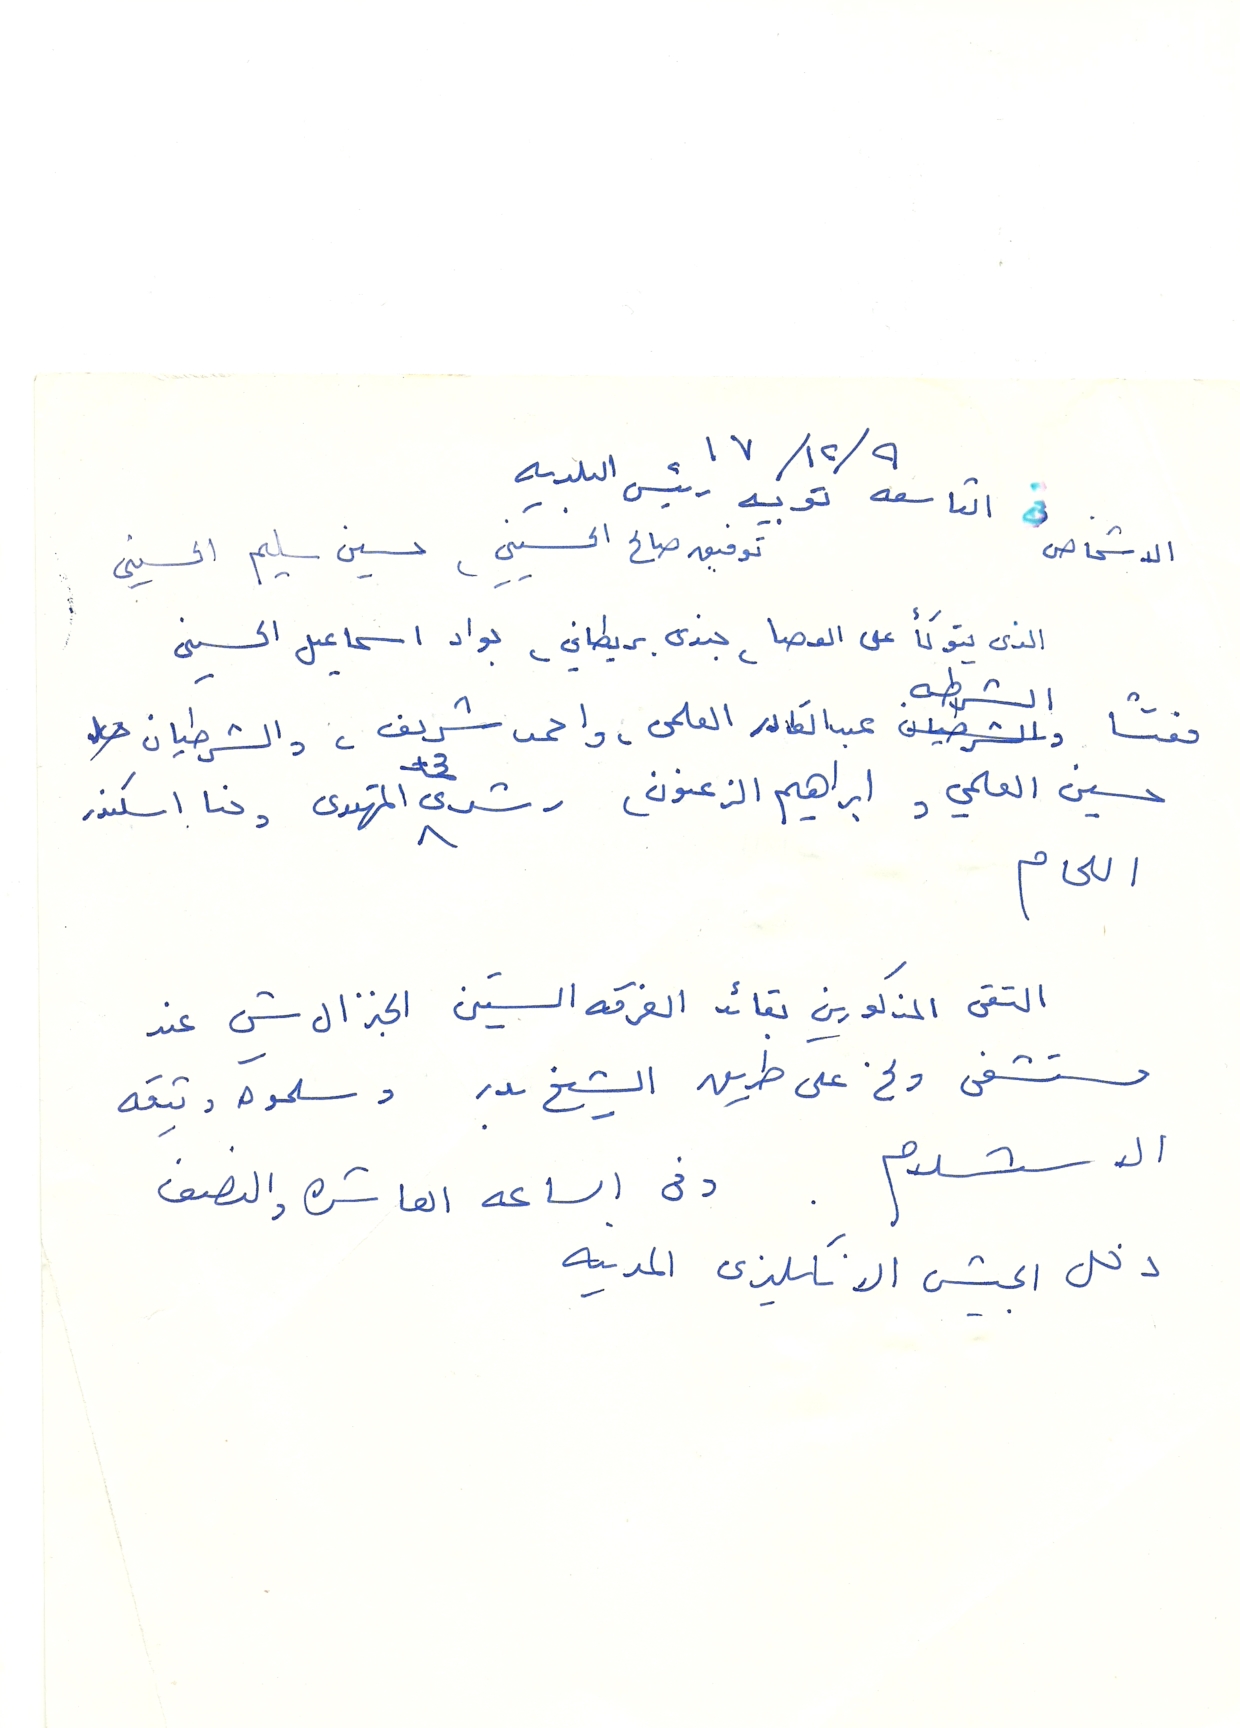 ٩/١٢/١٧
في التاسعه توجه رئيس البلديه
الاشخاص توفيق صالح الحسيني، حسين سليم الحسيني
الذى يتوكأ على العصا، جندى بريطاني، جواد اسماعيل الحسيني
مفتشا الشرطه عبدالقادر العلمى، واحمد شريف، والشرطيان
حسين العلمي و ابراهيم الزعنون، رشدى المهتدى وحنا اسكندر
اللحام
التقى المذكورين بقائد الفرقه الستين الجنرال شي عند
مستشفى على طريق الشيخ بدر وسلموه وثيقه
الاستسلام. وفى الساعه العاشره والنصف
دخل الجيش الانكليزى المدينه